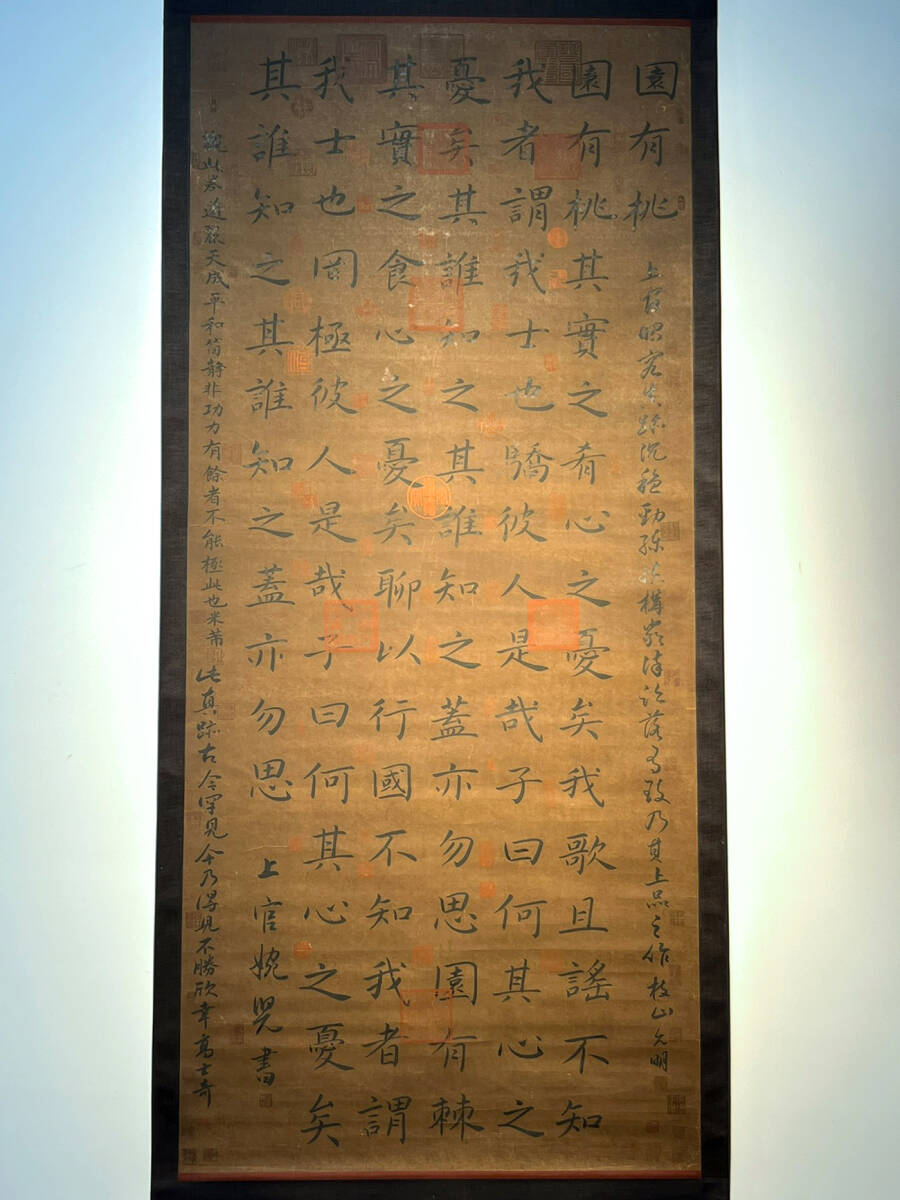 園有桃
上官昭容真跡沉穩勁構嚴謹落有致乃其上品之作 枝山允明
園有桃其實之肴心之憂矣我歌且謠不知
我者謂我士也驕彼人是哉子曰何其心之
憂矣其誰知之其誰知之蓋亦勿思園有棘
其實之食心之憂矣聊以行國不知我者謂
我士也罔極彼人是哉子曰何其心之憂矣
其誰知之其誰知之蓋亦勿思 上官婉兒書
觀此卷遒麗天成平和簡靜非功力有餘者不能極此也米芾 此真跡古今罕見今乃得見不勝欣幸高士奇